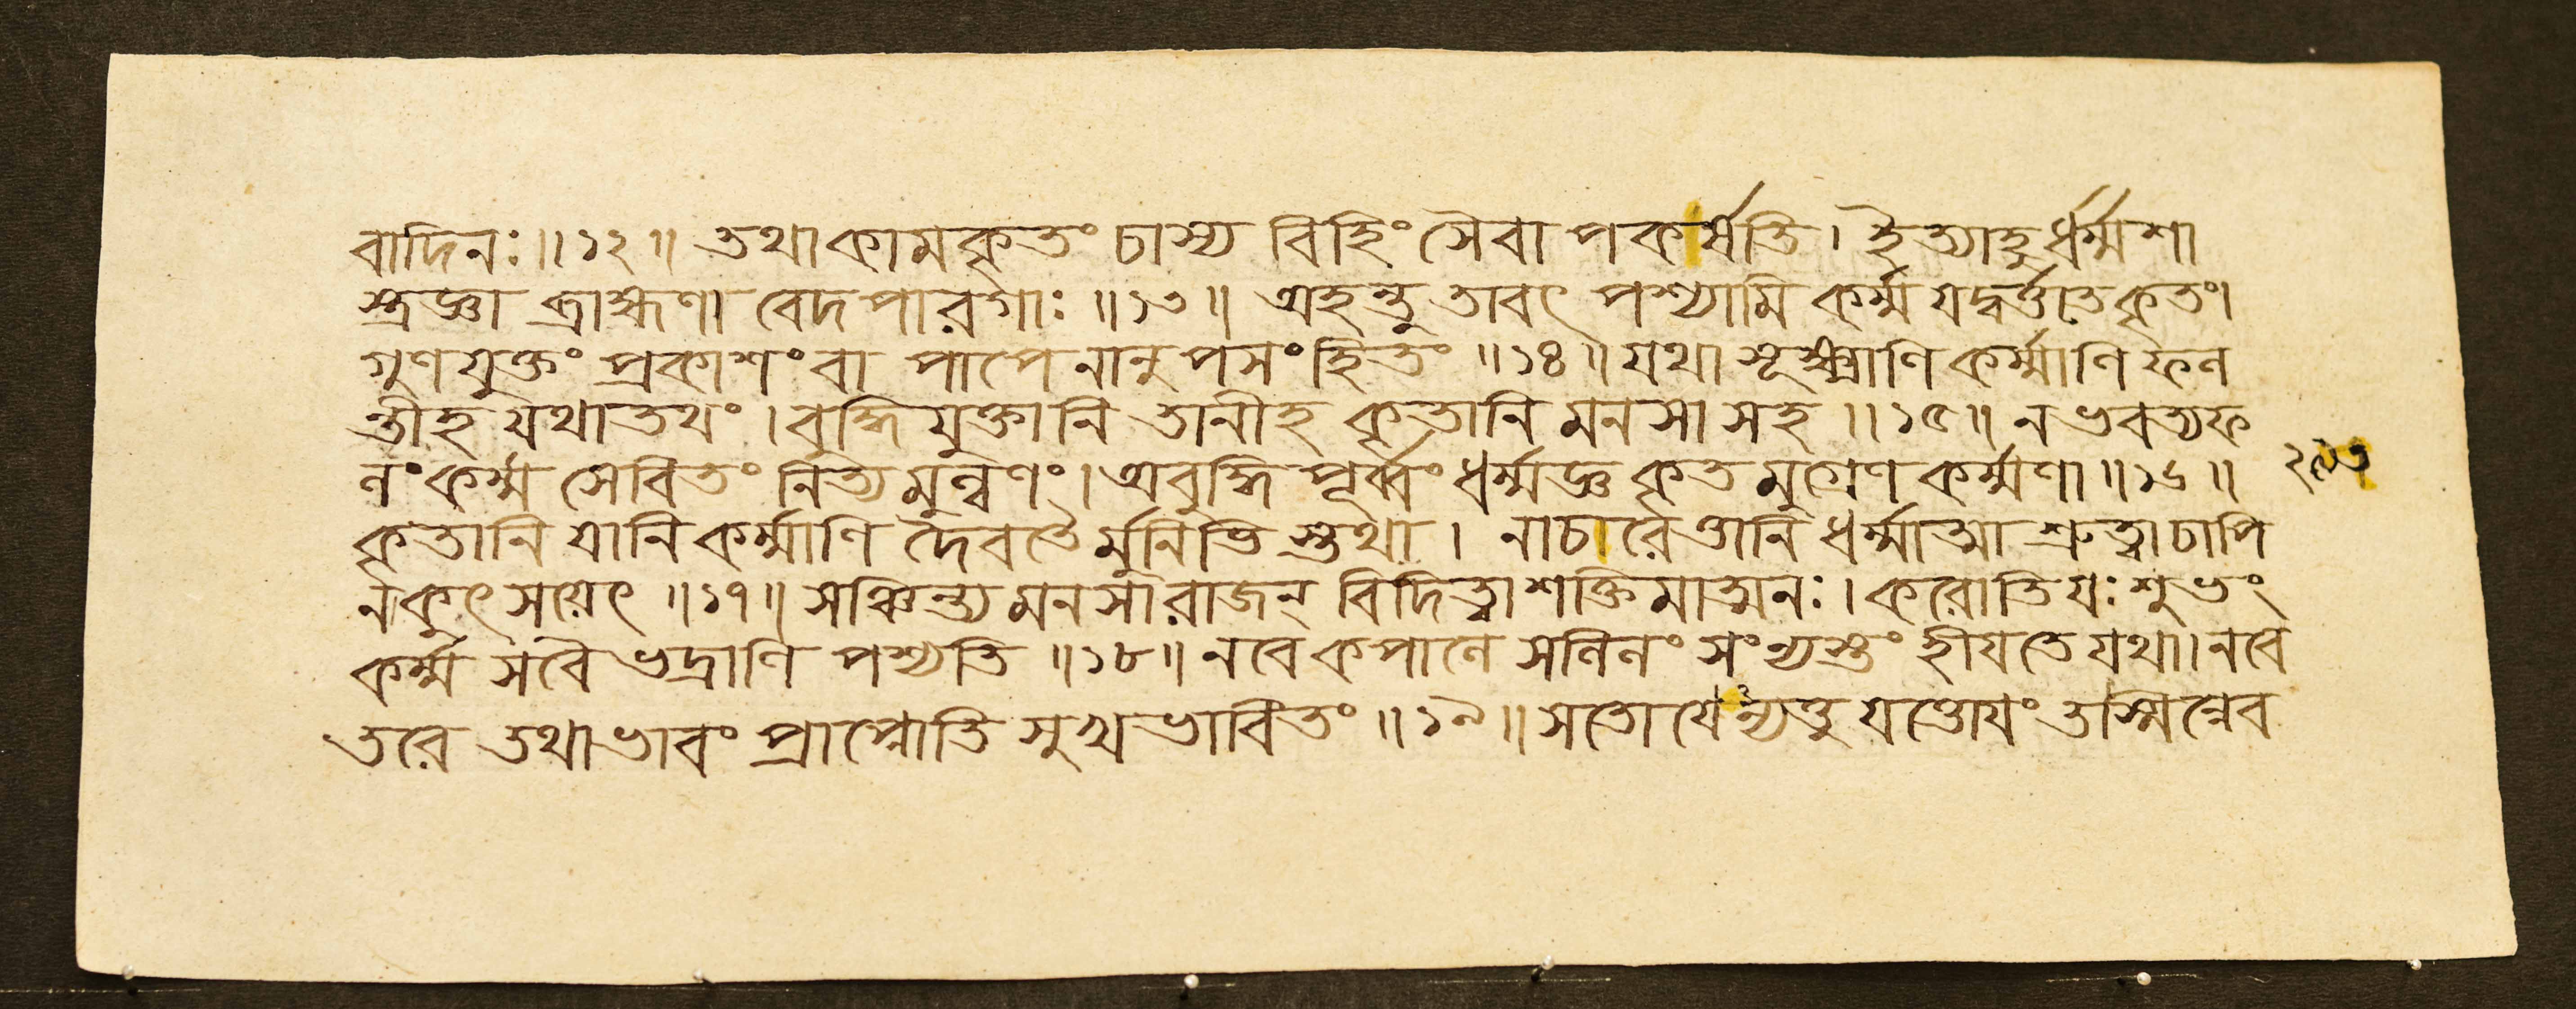 বাদিনঃ॥১২॥ তথাকামকৃতং চাস্য বিহিং সৈবাপকর্ষতি। ইত্যাহুর্ধর্ম্মশা
স্ত্রজ্ঞা ব্রাহ্মণা বেদপারগাঃ॥১৩॥ অহন্তু তাবৎ পশ্যামি কর্ম্ম যদ্বর্ত্ততেকৃতং।
গুণযুক্তং প্রকাশং বা পাপেনানুপসংহিতং॥১৪॥ যথা সূক্ষ্মাণি কর্ম্মাণি ফল
ন্তীহ যথাতথং। বুদ্ধিযুক্তানি তানীহ কৃতানি মনসা সহ॥১৫॥ ন ভবত্যফ
লং কর্ম্ম সেবিতং নিত্যমুল্বণং। অবুদ্ধিপূর্ব্বং ধর্ম্মজ্ঞ কৃতমুগ্রেণ কর্ম্মণা॥১৬॥
কৃতানি যানি কর্ম্মাণি দৈবতৈর্মুনিভিস্তথা। নাচরেত্তানি ধর্ম্মাত্মা শ্রুত্বা চাপি
ন কুৎসয়েৎ॥১৭॥ সঞ্চিন্ত্য মনসা রাজন্ বিদিত্বা শক্তিমাত্মনঃ। করোতি যঃ শুভং
কর্ম্ম স বৈ ভদ্রাণি পশ্যতি॥১৮॥ নবে কপালে সলিলং সংন্যস্তং হীযতে যথা। নবে
তরে তথাভাবং প্রাপ্নোতি সুখভাবিতং॥১৯॥ সতোযেঽন্যত্তু যত্তোযং তস্মিন্নেব